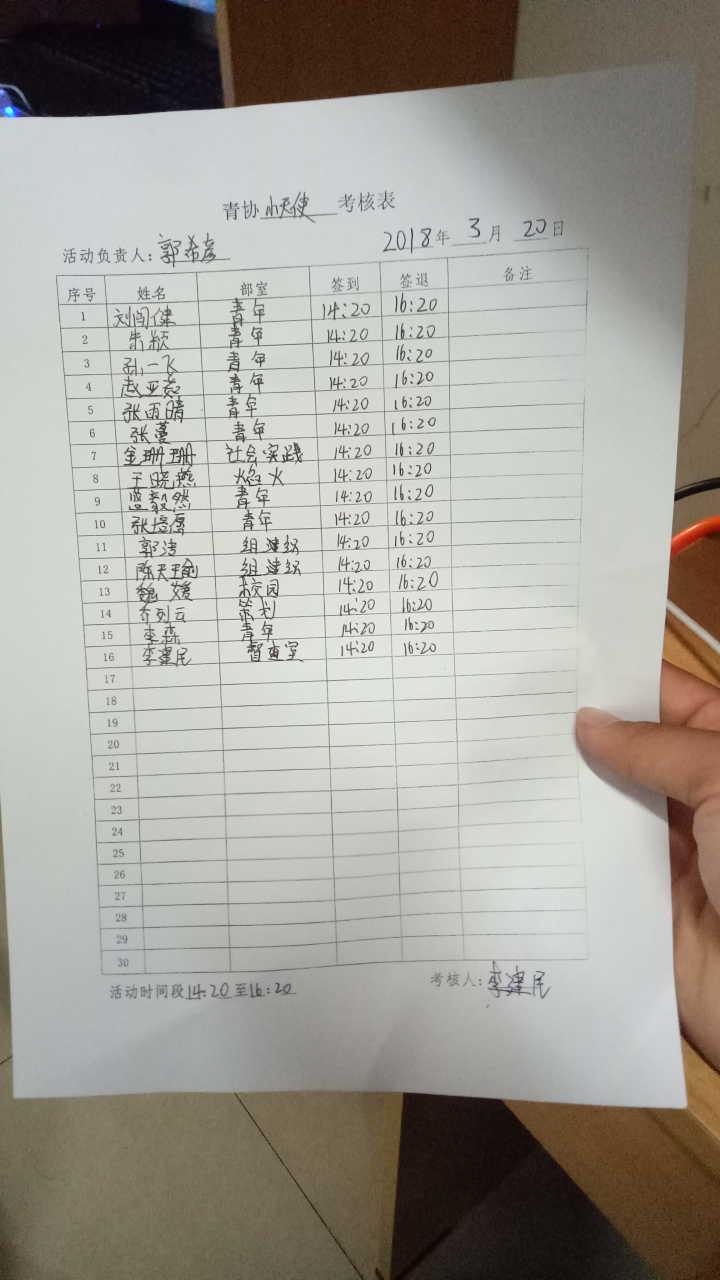 青协 小天使 考核表
活动负责人：郭希彦 2018年 3 月 20 日
序号 姓名 部室 签到 签退 备注
1 刘闯健 青年 14:20 16:20
2 朱颖 青年 14:20 16:20
3 孙一飞 青年 14:20 16:20
4 赵亚 青年 14:20 16:20
5 张雨晴 青年 14:20 16:20
6 张蔓 青年 14:20 16:20
7 金珊珊 社会实践 14:20 16:20
8 王晓燕 焰火 14:20 16:20
9 毅然 青年 14:20 16:20
10 张 青年 14:20 16:20
11 郭涛 组建部 14:20 16:20
12 陈天 组建部 14:20 16:20
13 魏媛 校园 14:20 16:20
14 乔列云 策划 14:20 16:20
15 李森 青年 14:20 16:20
16 李建民 督查室 14:20 16:20
17
18
19
20
21
22
23
24
25
26
27
28
29
30
活动时间段14:20至16:20 考核人：李建民